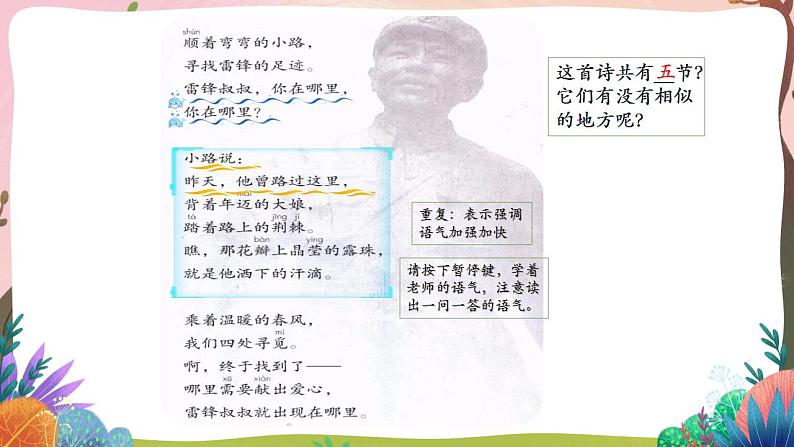 shùn
顺着弯弯的小路，
寻找雷锋的足迹。
雷锋叔叔，你在哪里，
你在哪里？
小路说：
昨天，他曾路过这里，
mài
背着年迈的大娘，
tà jīng jí
踏着路上的荆棘。
bàn yíng
瞧，那花瓣上晶莹的露珠，
就是他洒下的汗滴。
乘着温暖的春风，
mì
我们四处寻觅。
啊，终于找到了——
xū xiàn
哪里需要献出爱心，
雷锋叔叔就出现在哪里。
这首诗共有五节？
它们有没有相似
的地方呢？
重复：表示强调
语气加强加快
请按下暂停键，学着
老师的语气，注意读
出一问一答的语气。